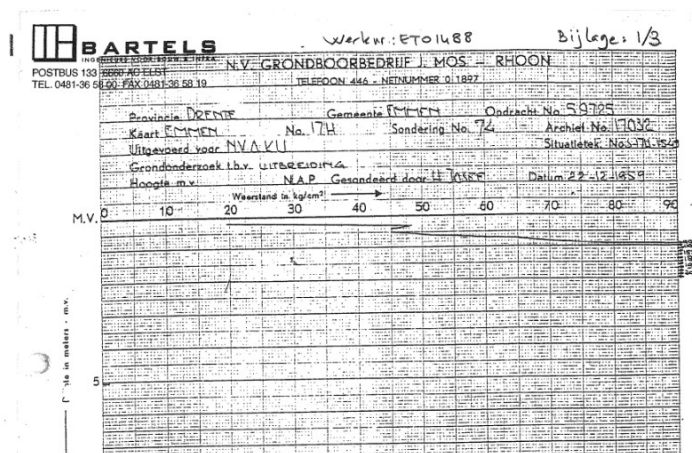 Werknr.: ET01488 Bijlage: 1/3
BARTELS
INGENIEURS VOOR BOUW & INFRA
POSTBUS 133 6660 AC ELST
TEL. 0481-36 58 00 FAX 0481-36 58 19
N.V. GRONDBOORBEDRIJF J. MOS – RHOON
TELEFOON 446 - NETNUMMER 0 1897
Provincie DRENTE Gemeente EMMEN Opdracht No 59725
Kaart EMMEN No. 17H Sondering No. 74 Archief No. 17032
Uitgevoerd voor Situatietek. No.
Grondonderzoek t.b.v. UITBREIDING
Hoogte m.v. N.A.P. Gesondeerd door Datum 22-12-1959
Weerstand in kg/cm²
M.V. 0 10 20 30 40 50 60 70 80 90
in meters - m.v.
5